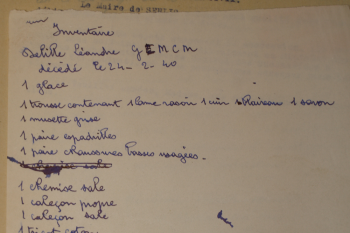 Inventaire
Delille Léandre GEMCM
décédé le 24 - 2 - 40
1 glace
1 trousse contenant 1 lame rasoir 1 cuir 1 blaireau 1 savon
1 musette grise
1 paire espadrilles
1 paire chaussures basses usagées.
1 chemise sale
1 chemise sale
1 caleçon propre
1 caleçon sale
1 tricot coton